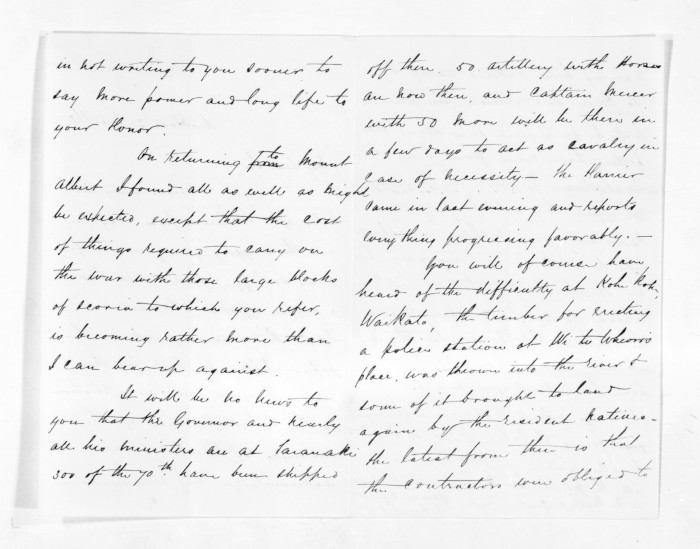 in not writing to you sooner to
say more power and long life to
your Honor.
On returning from to Mount
Albert I found all as well as might
be expected, except that the cost
of things required to carry on
the war with those large blocks
of scoria to which you refer,
is becoming rather more than
I can bear up against.
It will be no news to
you that the Governor and nearly
all his ministers are at Taranaki
300 of the 70th have been shipped
off then. 50 artillery with Horses
are now there, and Captain Mercer
with 50 more will be there in
a few days to act as cavalry in
case of necessity — the Harrier
came in last evening and reports
everything progressing favorably. —
You will of course have
heard of the difficulty at Kohe Kohe,
Waikato, the timber for erecting
a police station at Wi te Wheoro's
place, was thrown into the river &
some of it brought to land
again by the resident Natives –
the latest from there is that
the contractors were obliged to